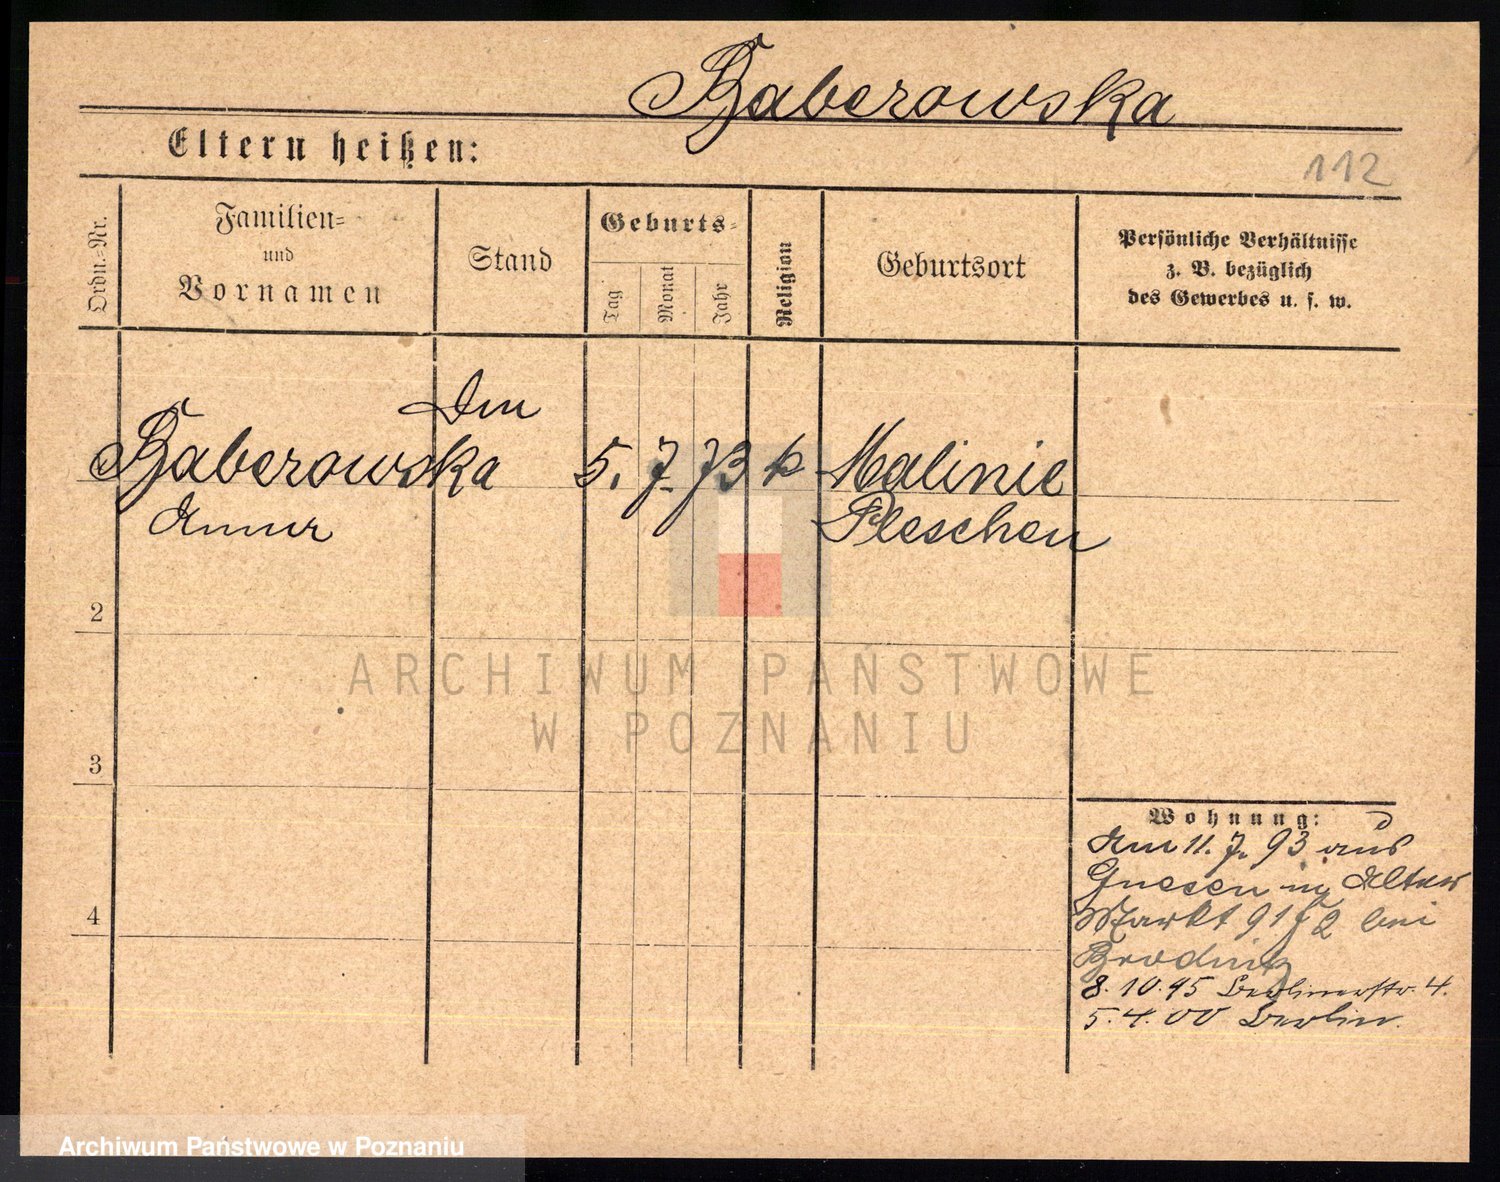 Baberowska
Eltern heißen:
112
Ordn.-Nr.
Familien-
und
Vornamen
Stand
Geburts-
Tag
Monat
Jahr
Religion
Geburtsort
Persönliche Verhältnisse
z. B. bezüglich
des Gewerbes u. s. w.
Baberowska
Anna
5. 7. 73
k
Malinie
Pleschen
2
3
4
Wohnung:
Am 11. 7. 93 aus
Gnesen Alter
Markt 91 bei
8.10.95 Berlinerstr. 4.
5.4.00 Berlin.
ARCHIWUM PAŃSTWOWE
W POZNANIU
Archiwum Państwowe w Poznaniu